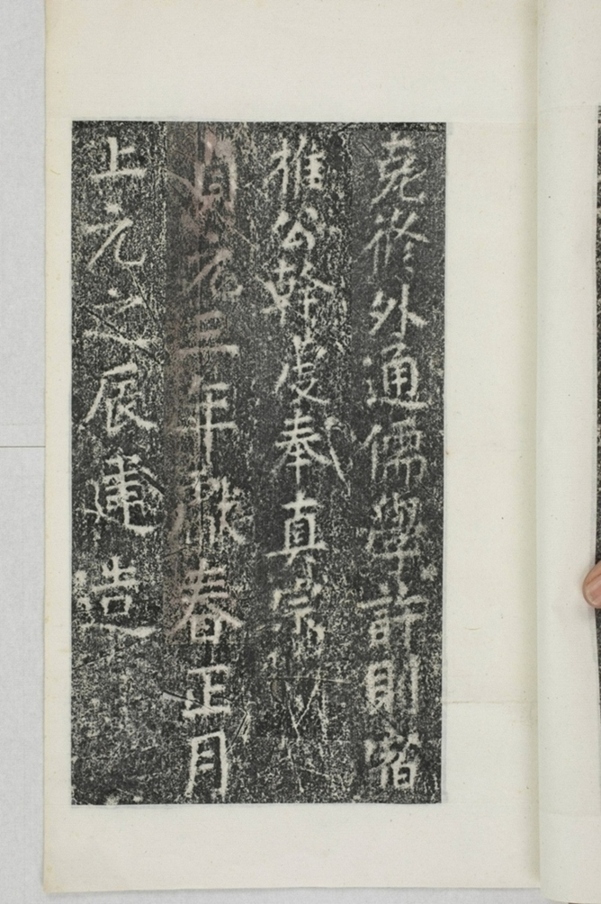 修外通儒學許則
推公幹虔奉真宗
貞元三年獻春正月
上元之辰建造